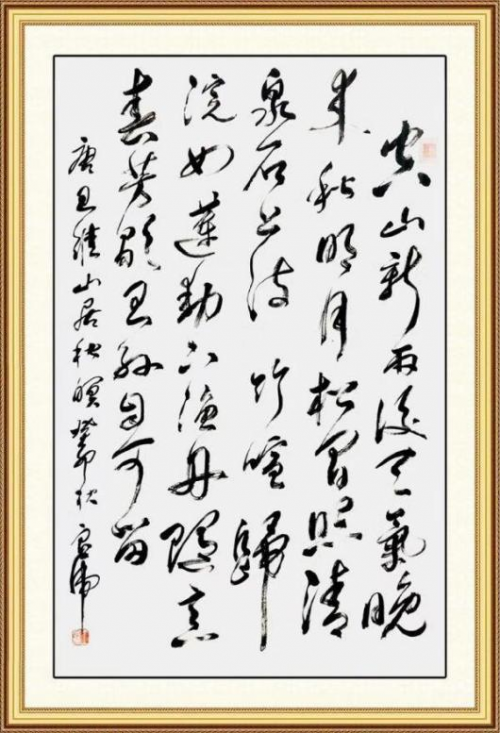 空山新雨後天氣晚
来秋明月松間照清
泉石上流竹喧歸
浣女蓮動下漁舟隨意
春芳歇王孫自可留
唐王維山居秋暝癸卯秋